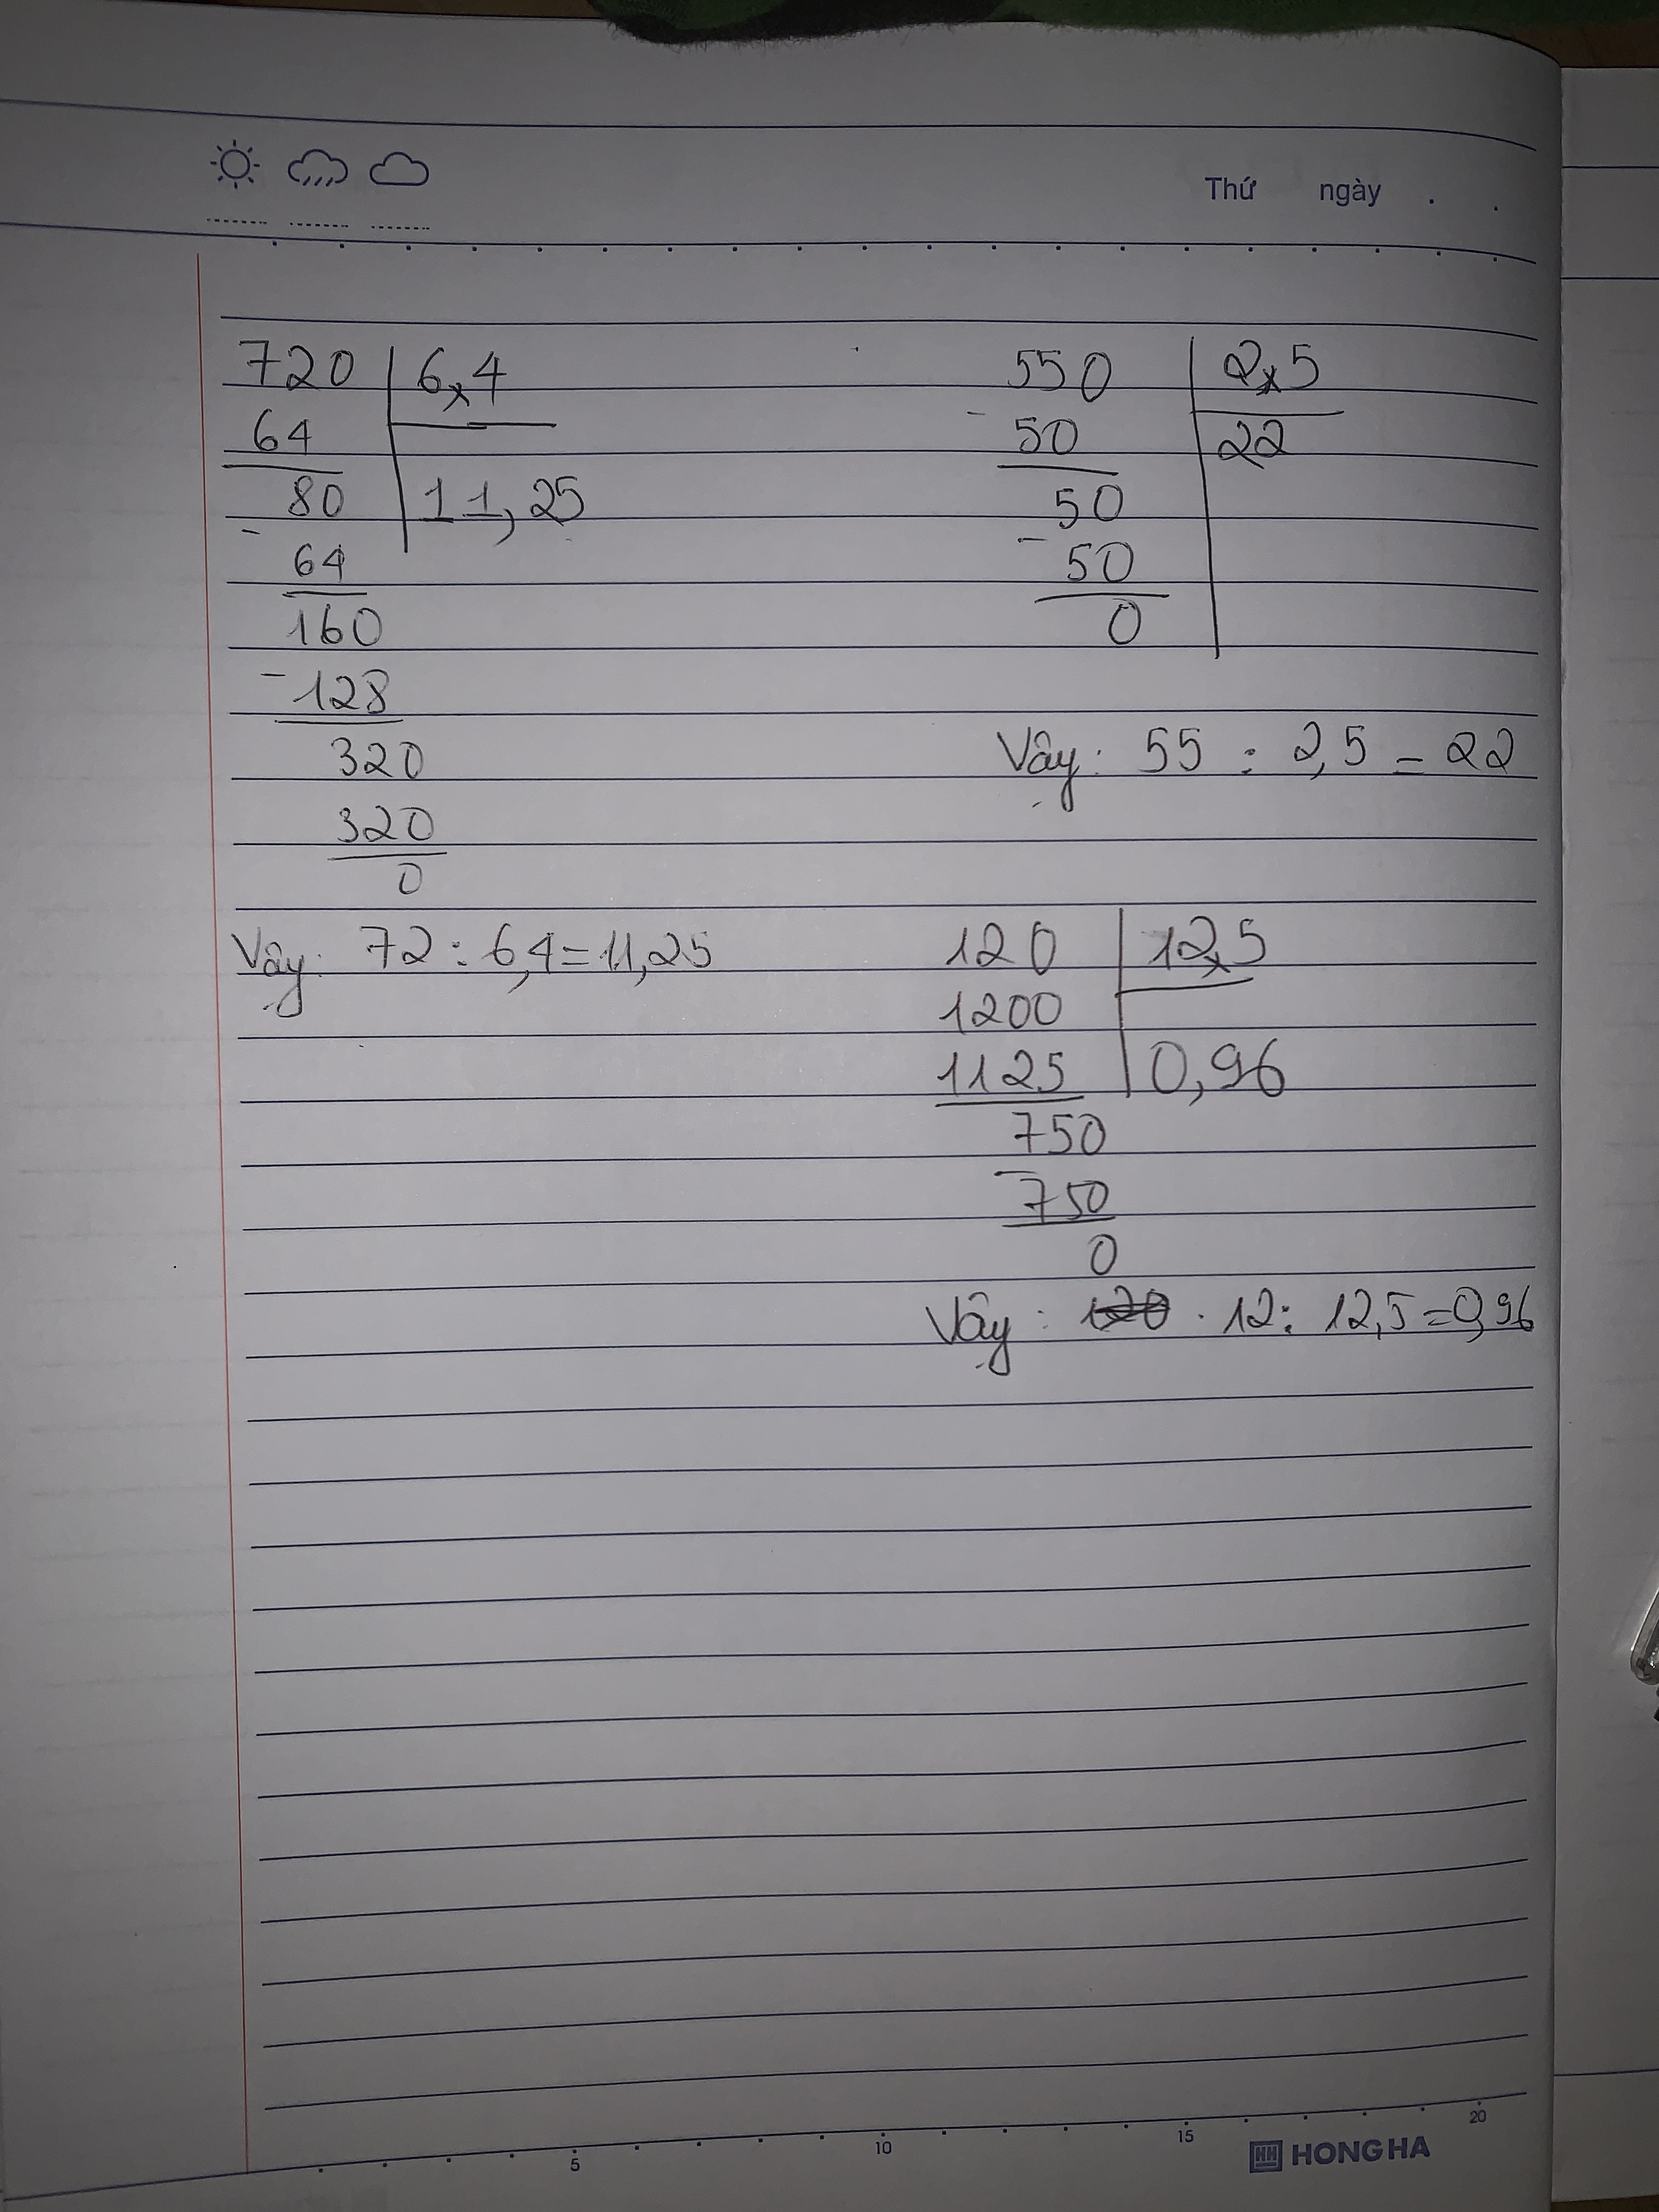 Thứ ngày
720 6,4
64
80 11,25
64
160
-128
320
320
0
Vây: 72 : 6,4 = 11,25
550 2,5
50 22
50
50
0
Vậy: 55 : 2,5 = 22
120 12,5
1200
1125 0,96
750
750
0
Vậy: 120 . 12 : 12,5 = 0,96
5 10 15 20
HH HONG HA